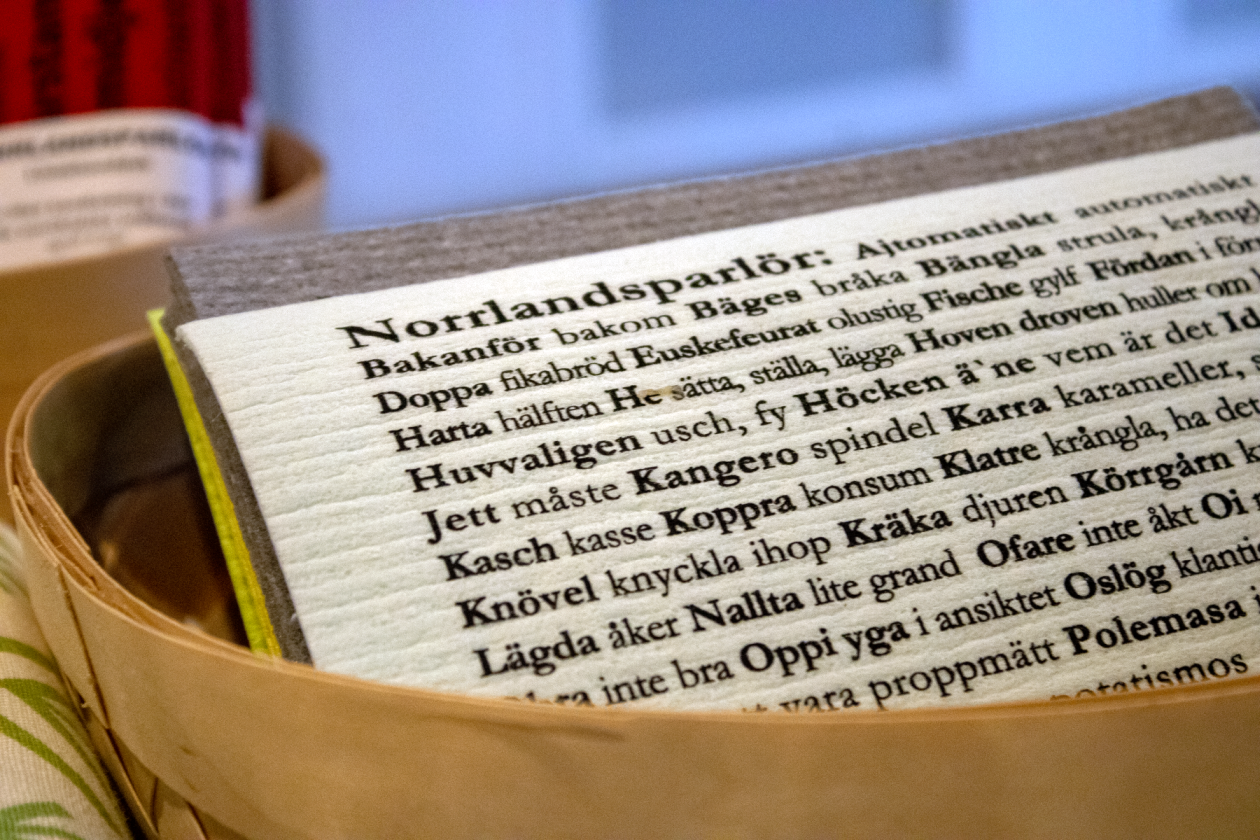 Norrlandsparlör: Ajtomatiskt automatiskt
Bakanför bakom Bäges bråka Bängla strula, krångl
Doppa fikabröd Euskefeurat olustig Fische gylf Fördan i för
Harta hälften He sätta, ställa, lägga Hoven droven huller om
Huvvaligen usch, fy Höcken ä`ne vem är det Id
Jett måste Kangero spindel Karra karameller,
Kasch kasse Koppra konsum Klatre krångla, ha de
Knövel knyckla ihop Kräka djuren Körrgårn k
Lägda åker Nallta lite grand Ofare inte åkt Oi
inte bra Oppi yga i ansiktet Oslög klanti
vara proppmätt Polemasa
potatismos